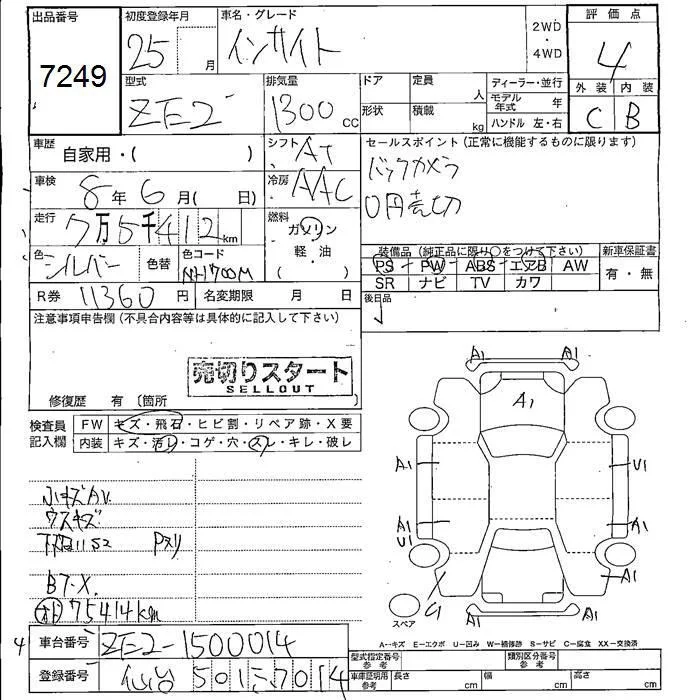 出品番号
7249
初度登録年月
25 月
車名・グレード
インサイト
2WD
・
4WD
評価点
4
外装 内装
C B
型式
ZE2
排気量
1300 cc
ドア
形状
定員 人
積載 kg
ディーラー・並行
モデル年式 年
ハンドル 左・右
車歴
自家用・( )
シフト
AT
車検
8年6月( 日)
冷房
AAC
走行
7万5千412km
燃料
ガソリン
軽・油
色
シルバー
色替
色コード
NH700M
R券 11360円
名変期限 月 日
セールスポイント(正常に機能するものに限ります)
バックカメラ
0円売切
装備品(純正品に限り○をつけて下さい)
PS PW ABS エアB AW
SR ナビ TV カワ
新車保証書
有・無
後日品
注意事項申告欄(不具合内容等は具体的に記入して下さい)
売切りスタート
SELLOUT
修復歴 有(箇所
検査員
記入欄
FW キズ・飛石・ヒビ割・リペア跡・X要
内装 キズ・汚レ・コゲ・穴・スレ・キレ・破レ
小キズAU.
ウスキズ
下廻りS2 Pスリ
B7・X.
75414km
A1 A1
A1
A1 U1
A1
U1
A1
A1
A1 A1
スペア
A--キズ E--エクボ U--凹み W--補修跡 S--サビ C--腐食 XX--交換済
4
車台番号 ZE2-1500014
登録番号 仙台 501 7014
型式指定番号
参考
類別区分番号
参考
車庫証明用
参考
長さ cm
幅 cm
高さ cm